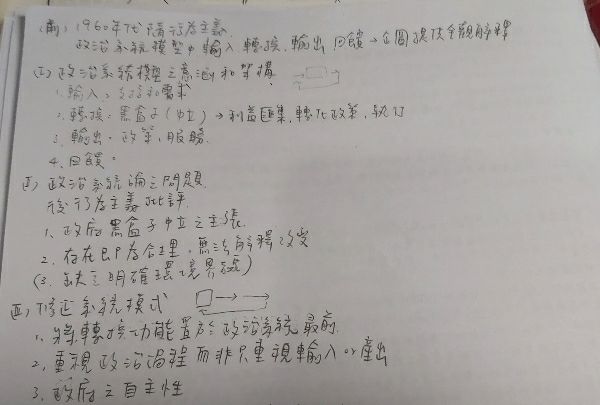 (前) 1960年代 隨行為主義.
政治系統模型中 輸入 轉換. 輸出 回饋 → 企圖提供全觀解釋
(二) 政治系統模型之意涵和架構.
1. 輸入:支持和需求
2. 轉換:黑盒子(中立) → 利益匯集, 轉化政策, 執行
3. 輸出:政策,服務.
4. 回饋.
政治系統論之問題.
後行為主義批評.
1. 政府黑盒子中立之主張.
2. 存在即為合理, 無法解釋改變
(3. 缺乏明確環境界說)
修正系統模式
1. 將轉換功能置於政治系統最前.
2. 重視政治過程而非只重視輸入or產出
3. 政府之自主性